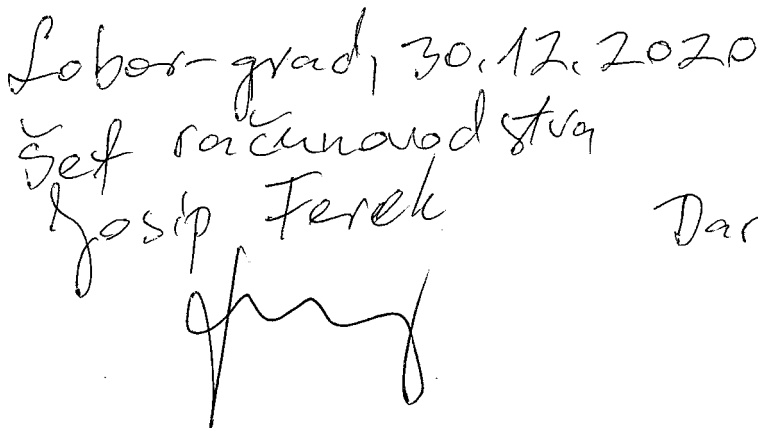 Lobor-grad, 30.12.2020
Šef računovodstva
Josip Ferek Dar